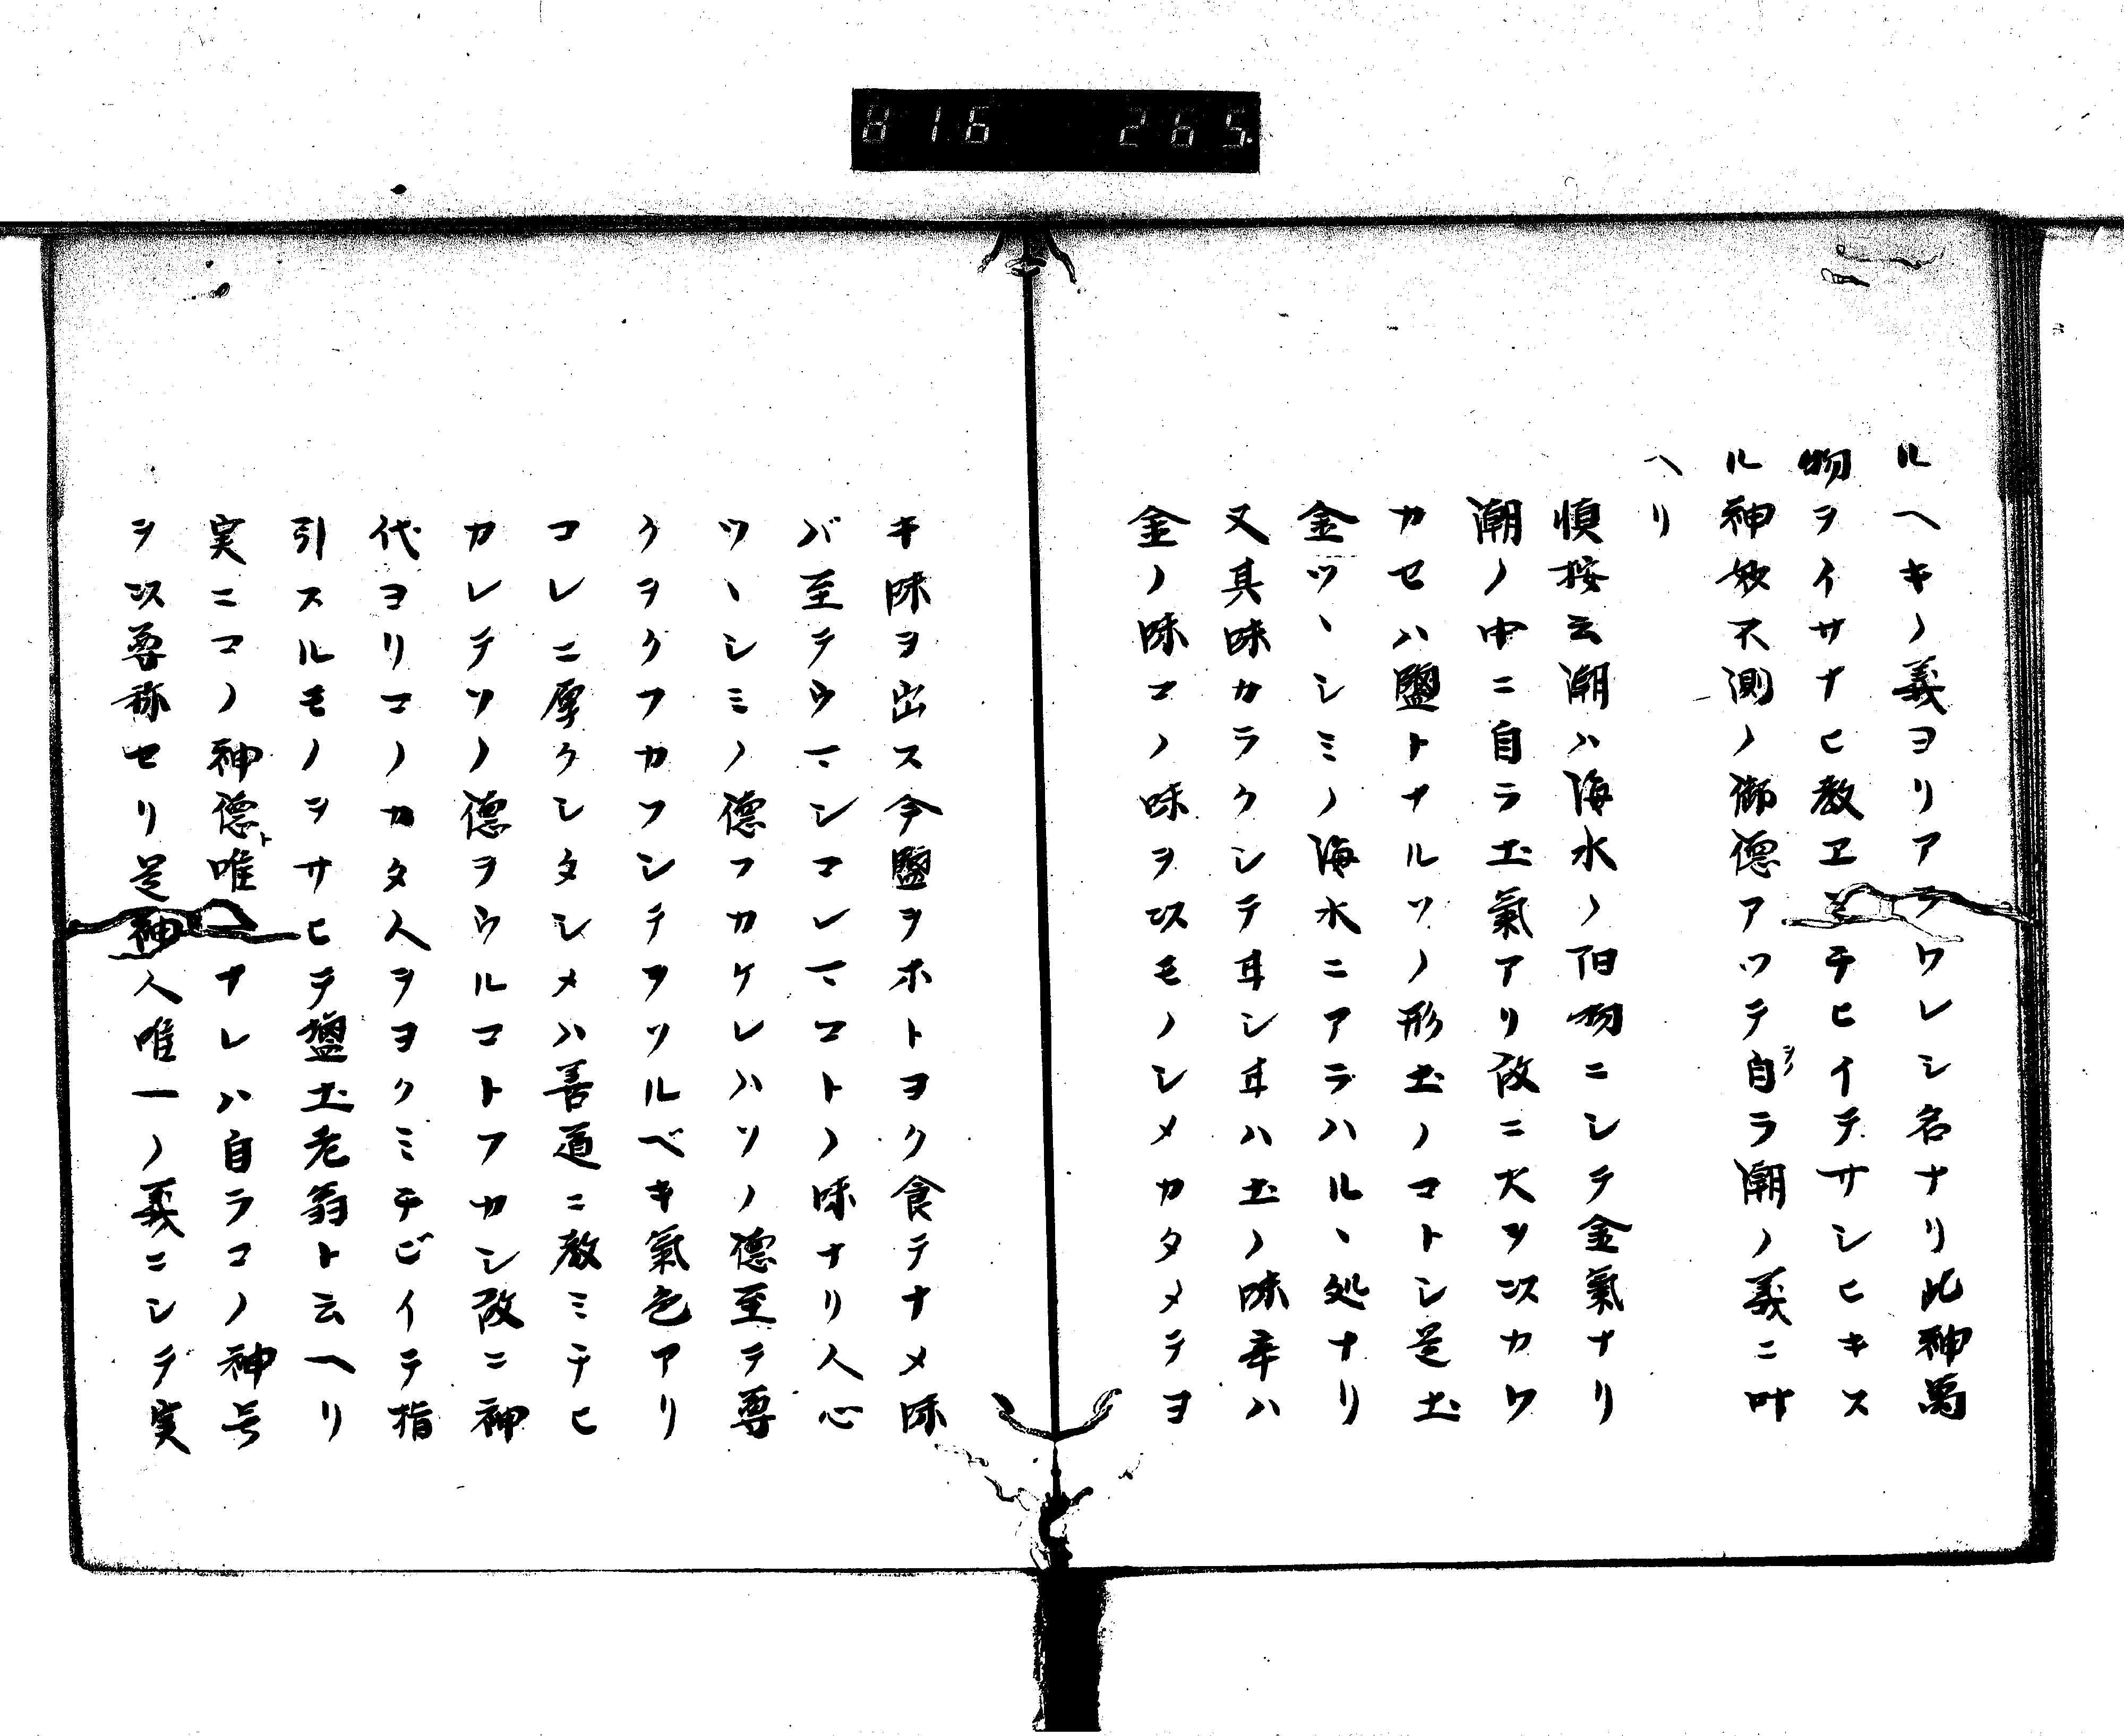 816 265.
ルヘキノ義ヨリアラワレシ名ナリ此神萬
物ヲイサナヒ教ヱミチヒイテサシヒキス
ル神妙不測ノ御德アツテ自ラ潮ノ義ニ叶
ヘリ
慎按云潮ハ海水ノ陌物ニシテ金氣ナリ
潮ノ中ニ自ラ土氣アリ故ニ火ヲ以カワ
カセハ鹽トナルソノ形土ノマトシ是土
金ツヽシミノ海水ニアラハルヽ処ナリ
又其味カラクシテ耳シ耳ハ土ノ味辛ハ
金ノ味コノ味ヲ以モノシメカタメテヨ
キ味ヲ出ス今鹽ヲホトヨク食テナメ味
バ至テウマシコレマコトノ味ナリ人心
ツヽシミノ德フカケレハソノ德至テ尊
クヲクフカフシテヲソルベキ氣色アリ
コレニ厚クシタシメハ善道ニ教ミチヒ
カレテソノ德ヲウルコトフカシ故ニ神
代ヨリコノカタ人ヲヨクミチビイテ指
引スルモノヲサヒテ鹽土老翁ト云ヘリ
実ニコノ神德ト唯一ナレハ自ラコノ神号
ヲ以尊称セリ是神人唯一ノ義ニシテ実